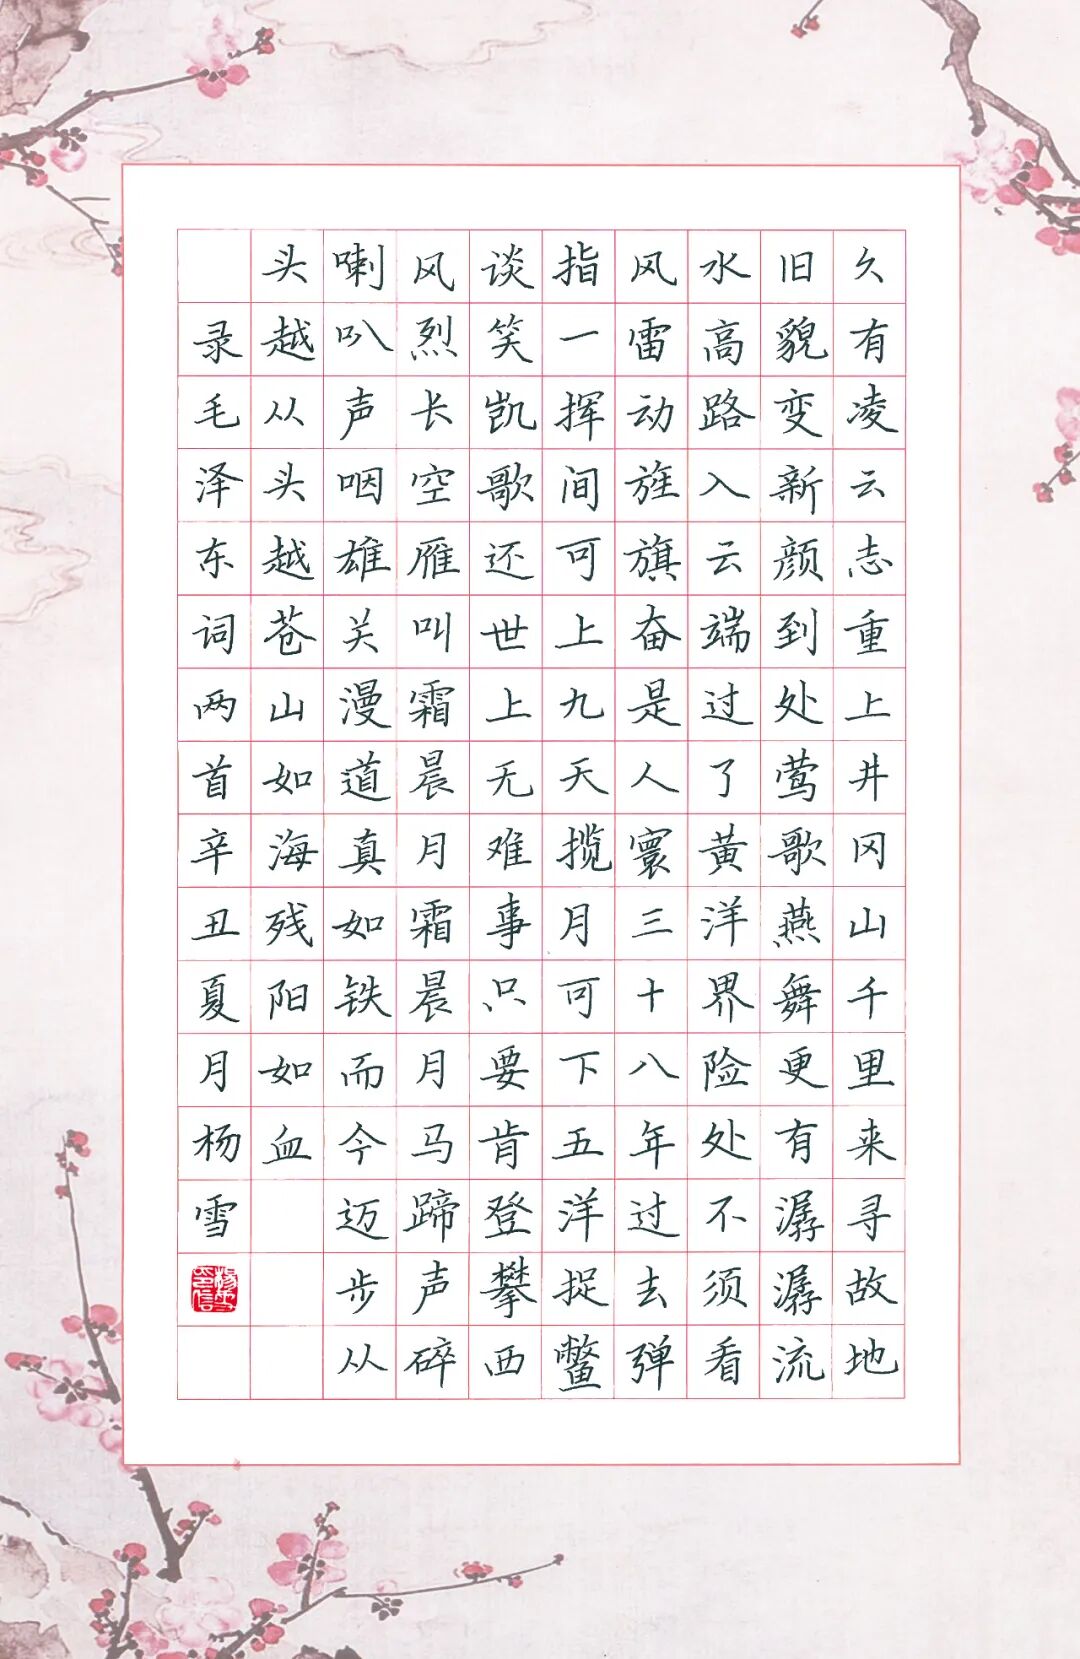 久有凌云志重上井冈山千里来寻故地
旧貌变新颜到处莺歌燕舞更有潺潺流
水高路入云端过了黄洋界险处不须看
风雷动旌旗奋是人寰三十八年过去弹
指一挥间可上九天揽月可下五洋捉鳖
谈笑凯歌还世上无难事只要肯登攀西
风烈长空雁叫霜晨月霜晨月马蹄声碎
喇叭声咽雄关漫道真如铁而今迈步从
头越从头越苍山如海残阳如血
录毛泽东词两首辛丑夏月杨雪
杨雪印信